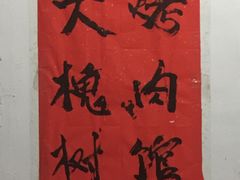 大槐树
烤肉馆